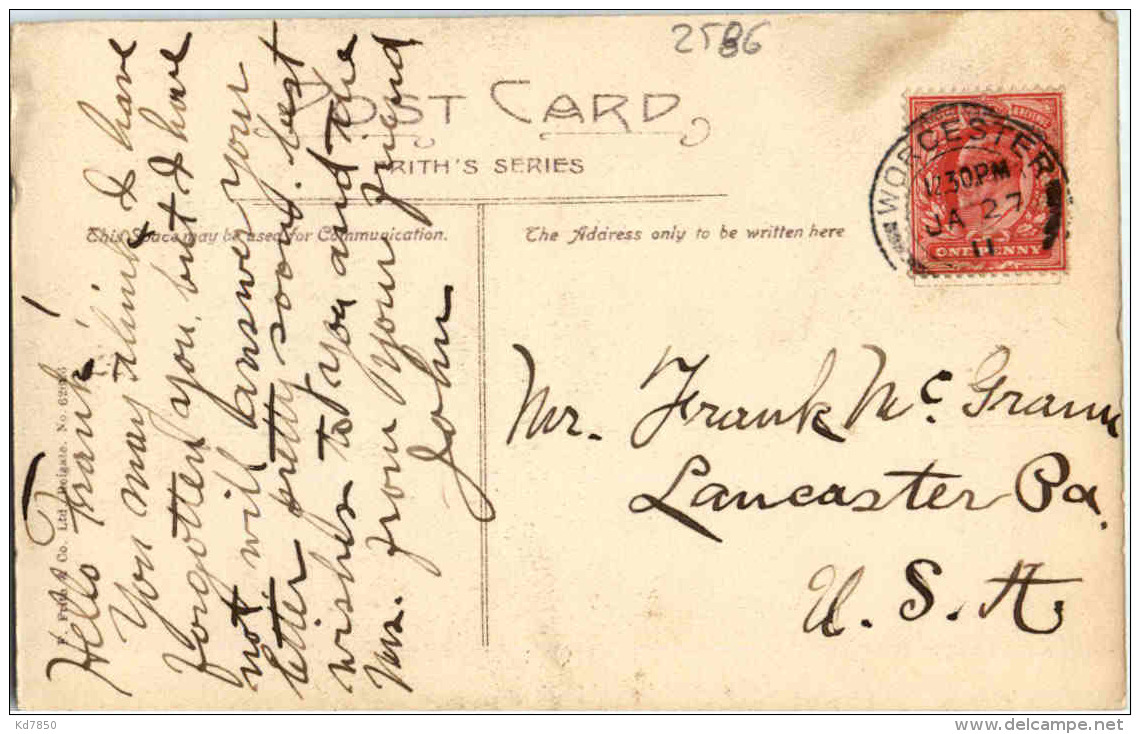 2586
POST CARD
FRITH'S SERIES
This Space may be used for Communication.
The Address only to be written here
WORCESTER
12.30PM
JA 27
11
ONE PENNY
Mr. Frank Mc Grann
Lancaster Pa.
U. S. A.
Hello Frank!
You may think I have
forgotten you, but I have
not. will answer your
letter pretty soon. best
wishes to you and the
Mrs. from your friend
John
F. Frith & Co. Ltd. Reigate. No.
Kd7850
delcampe.net